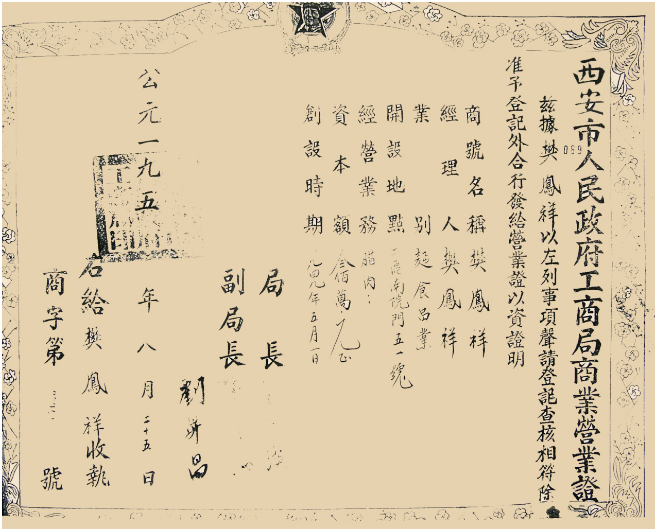 西安市人民政府工商局商業營業證
茲據樊鳳祥以左列事項聲請登記查核相符除
准予登記外合行發給營業證以資證明
商號名稱樊鳳祥
經理人樊鳳祥
業別 食品業
開設地點 南院門五一號
經營業務 肉
資本額 叁佰萬元正
創設時期 一九四九年五月一日
局長
副局長
劉 昌
公元一九五 年八月二十五日
右給樊鳳祥收執
商字第 號